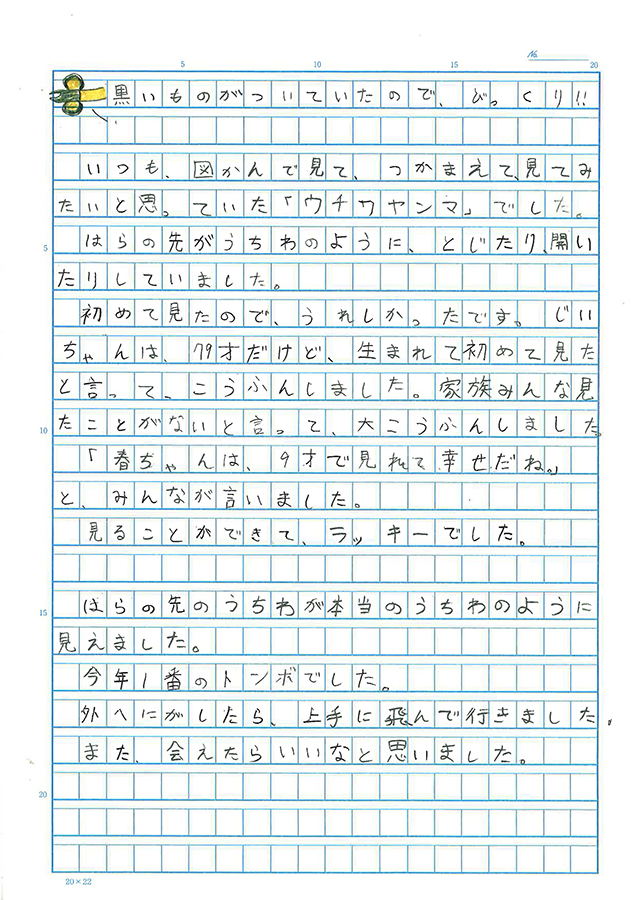 №
5 10 15 20
黒いものがついていたので、びっくり!!
いつも、図かんで見て、つかまえて、見てみ
たいと思っていた「ウチワヤンマ」でした。
5
はらの先がうちわのように、とじたり、開い
たりしていました。
初めて見たので、うれしかったです。じい
ちゃんは、79才だけど、生まれて初めて見た
と言って、こうふんしました。家族みんな見
10
たことがないと言って、大こうふんしました。
「春ちゃんは、9才で見れて幸せだね。」
と、みんなが言いました。
見ることができて、ラッキーでした。
15
はらの先のうちわが本当のうちわのように
見えました。
今年1番のトンボでした。
外へにがしたら、上手に飛んで行きました。
また、会えたらいいなと思いました。
20
20×22